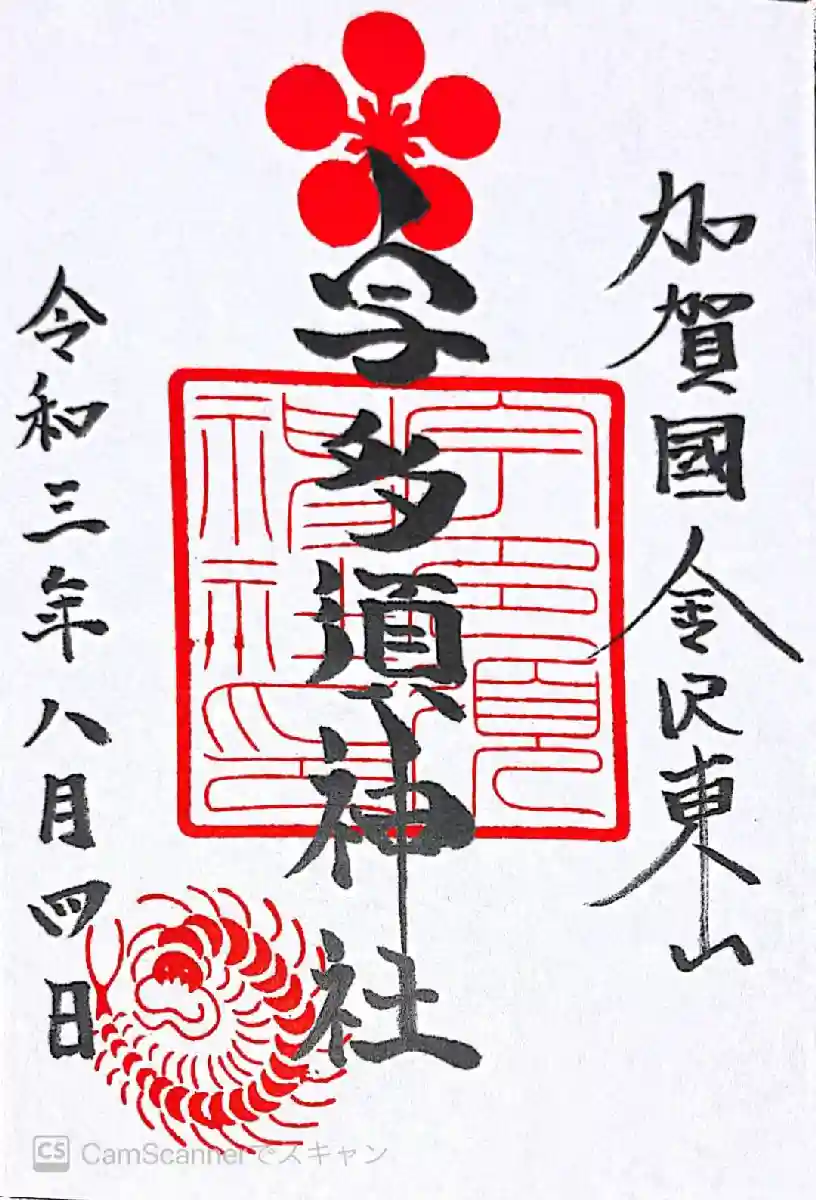 加賀國金沢東山
宇多須神社
宇多須
神社印
令和三年八月四日
CS CamScannerでスキャン